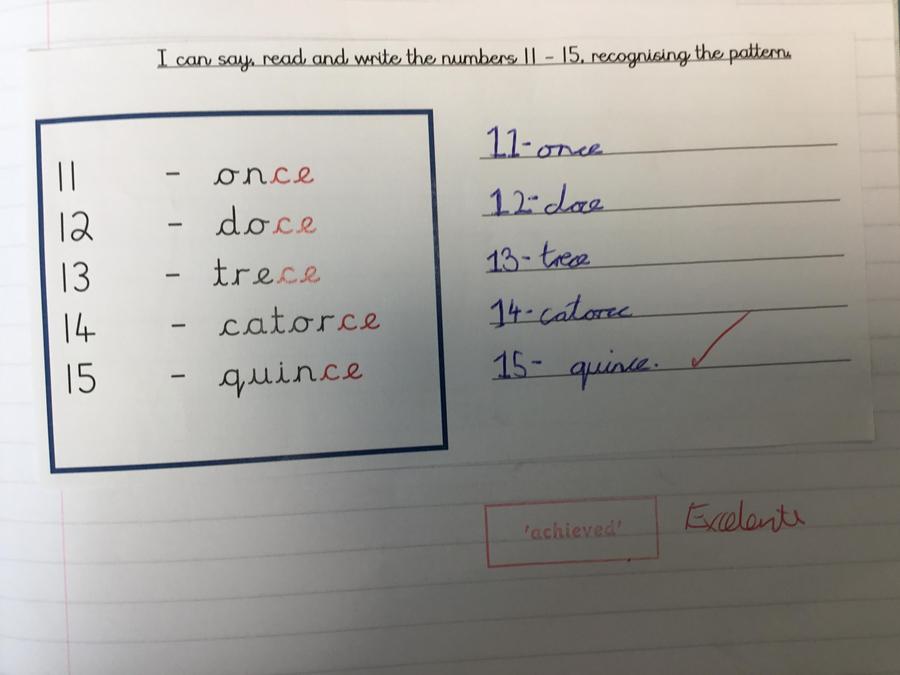 I can say, read and write the numbers 11 - 15, recognising the pattern.
11 - once
12 - doce
13 - trece
14 - catorce
15 - quince
11-once
12-doce
13-trece
14-catorce
15- quince.
'achieved'
Excelente